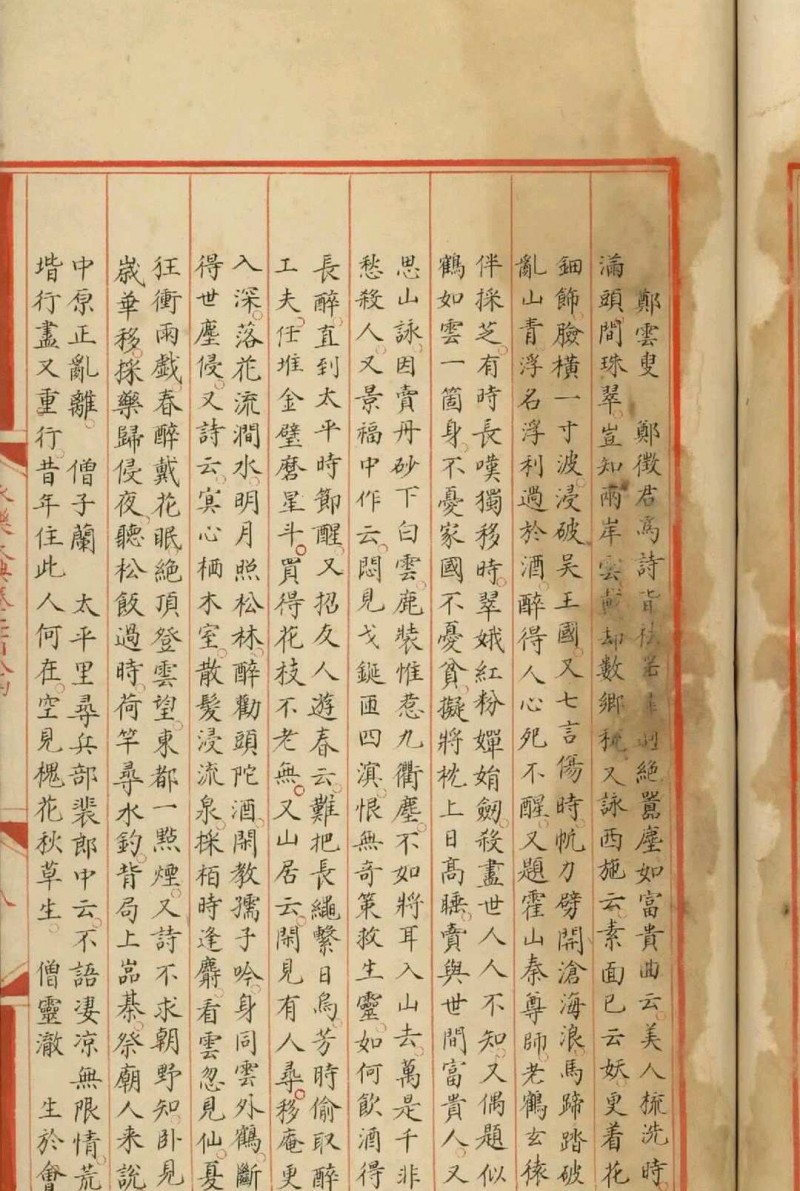 鄭雲叟 鄭徵君為詩皆絕囂塵如富貴曲云美人梳洗時
滿頭間珠翠豈知兩岸雲戴却數鄉稅又詠西施云素面已云妖更着花
鈿飾臉橫一寸波浸破吳王國又七言傷時帆力劈開滄海浪馬蹄踏破
亂山青浮名浮利過於酒醉得人心死不醒又題霍山秦尊師老鶴玄猿
伴採芝有時長嘆獨移時翠娥紅粉嬋娟劒殺盡世人人不知又偶題似
鶴如雲一箇身不憂家國不憂貧擬將枕上日高睡賣與世間富貴人又
思山詠因賣丹砂下白雲鹿裝惟惹九衢塵不如將耳入山去萬是千非
愁殺人又景福中作云悶見戈鋋匝四溟恨無奇策救生靈如何飲酒得
長醉直到太平時節醒又招友人遊春云難把長繩繫日烏芳時偷取醉
工夫任堆金璧磨星斗買得花枝不老無又山居云閑見有人尋移庵更
入深落花流澗水明月照松林醉勸頭陀酒閑教孺子吟身同雲外鶴斷
得世塵侵又詩云㝠心栖木室散髮浸流泉採栢時逢麝看雲忽見仙夏
狂衝雨戲春醉戴花眠絕頂登雲望東都一點煙又詩不求朝野知卧見
歲華移採藥歸侵夜聽松飯過時荷竿尋水釣背局上嵓棊祭廟人来說
中原正亂離 僧子蘭 太平里尋兵部裴郎中云不語凄凉無限情荒
堦行盡又重行昔年住此人何在空見槐花秋草生 僧靈澈 生於會